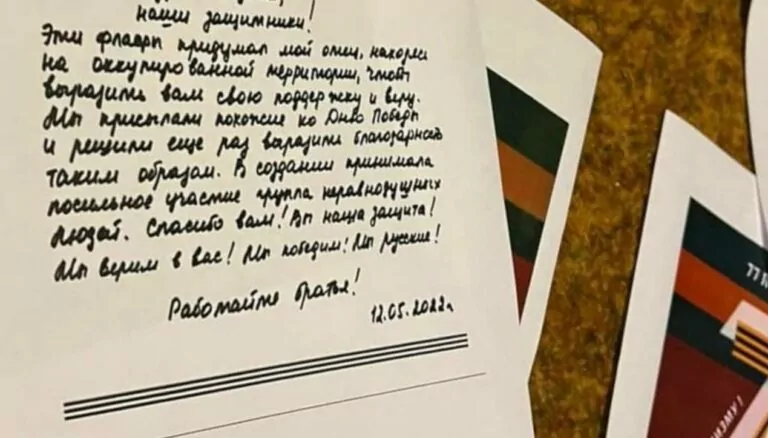 наши защитники!
Эти флаеры придумал мой отец, находясь
на оккупированной территории, чтобы
выразить вам свою поддержку и веру.
Мы присылали похожие ко Дню Победы
и решили еще раз выразить благодарность
таким образом. В создании принимала
посильное участие группа неравнодушных
людей. Спасибо вам! Вы наша защита!
Мы верим в вас! Мы победим! Мы русские!
Работайте братья!
12.05.2022г.
77